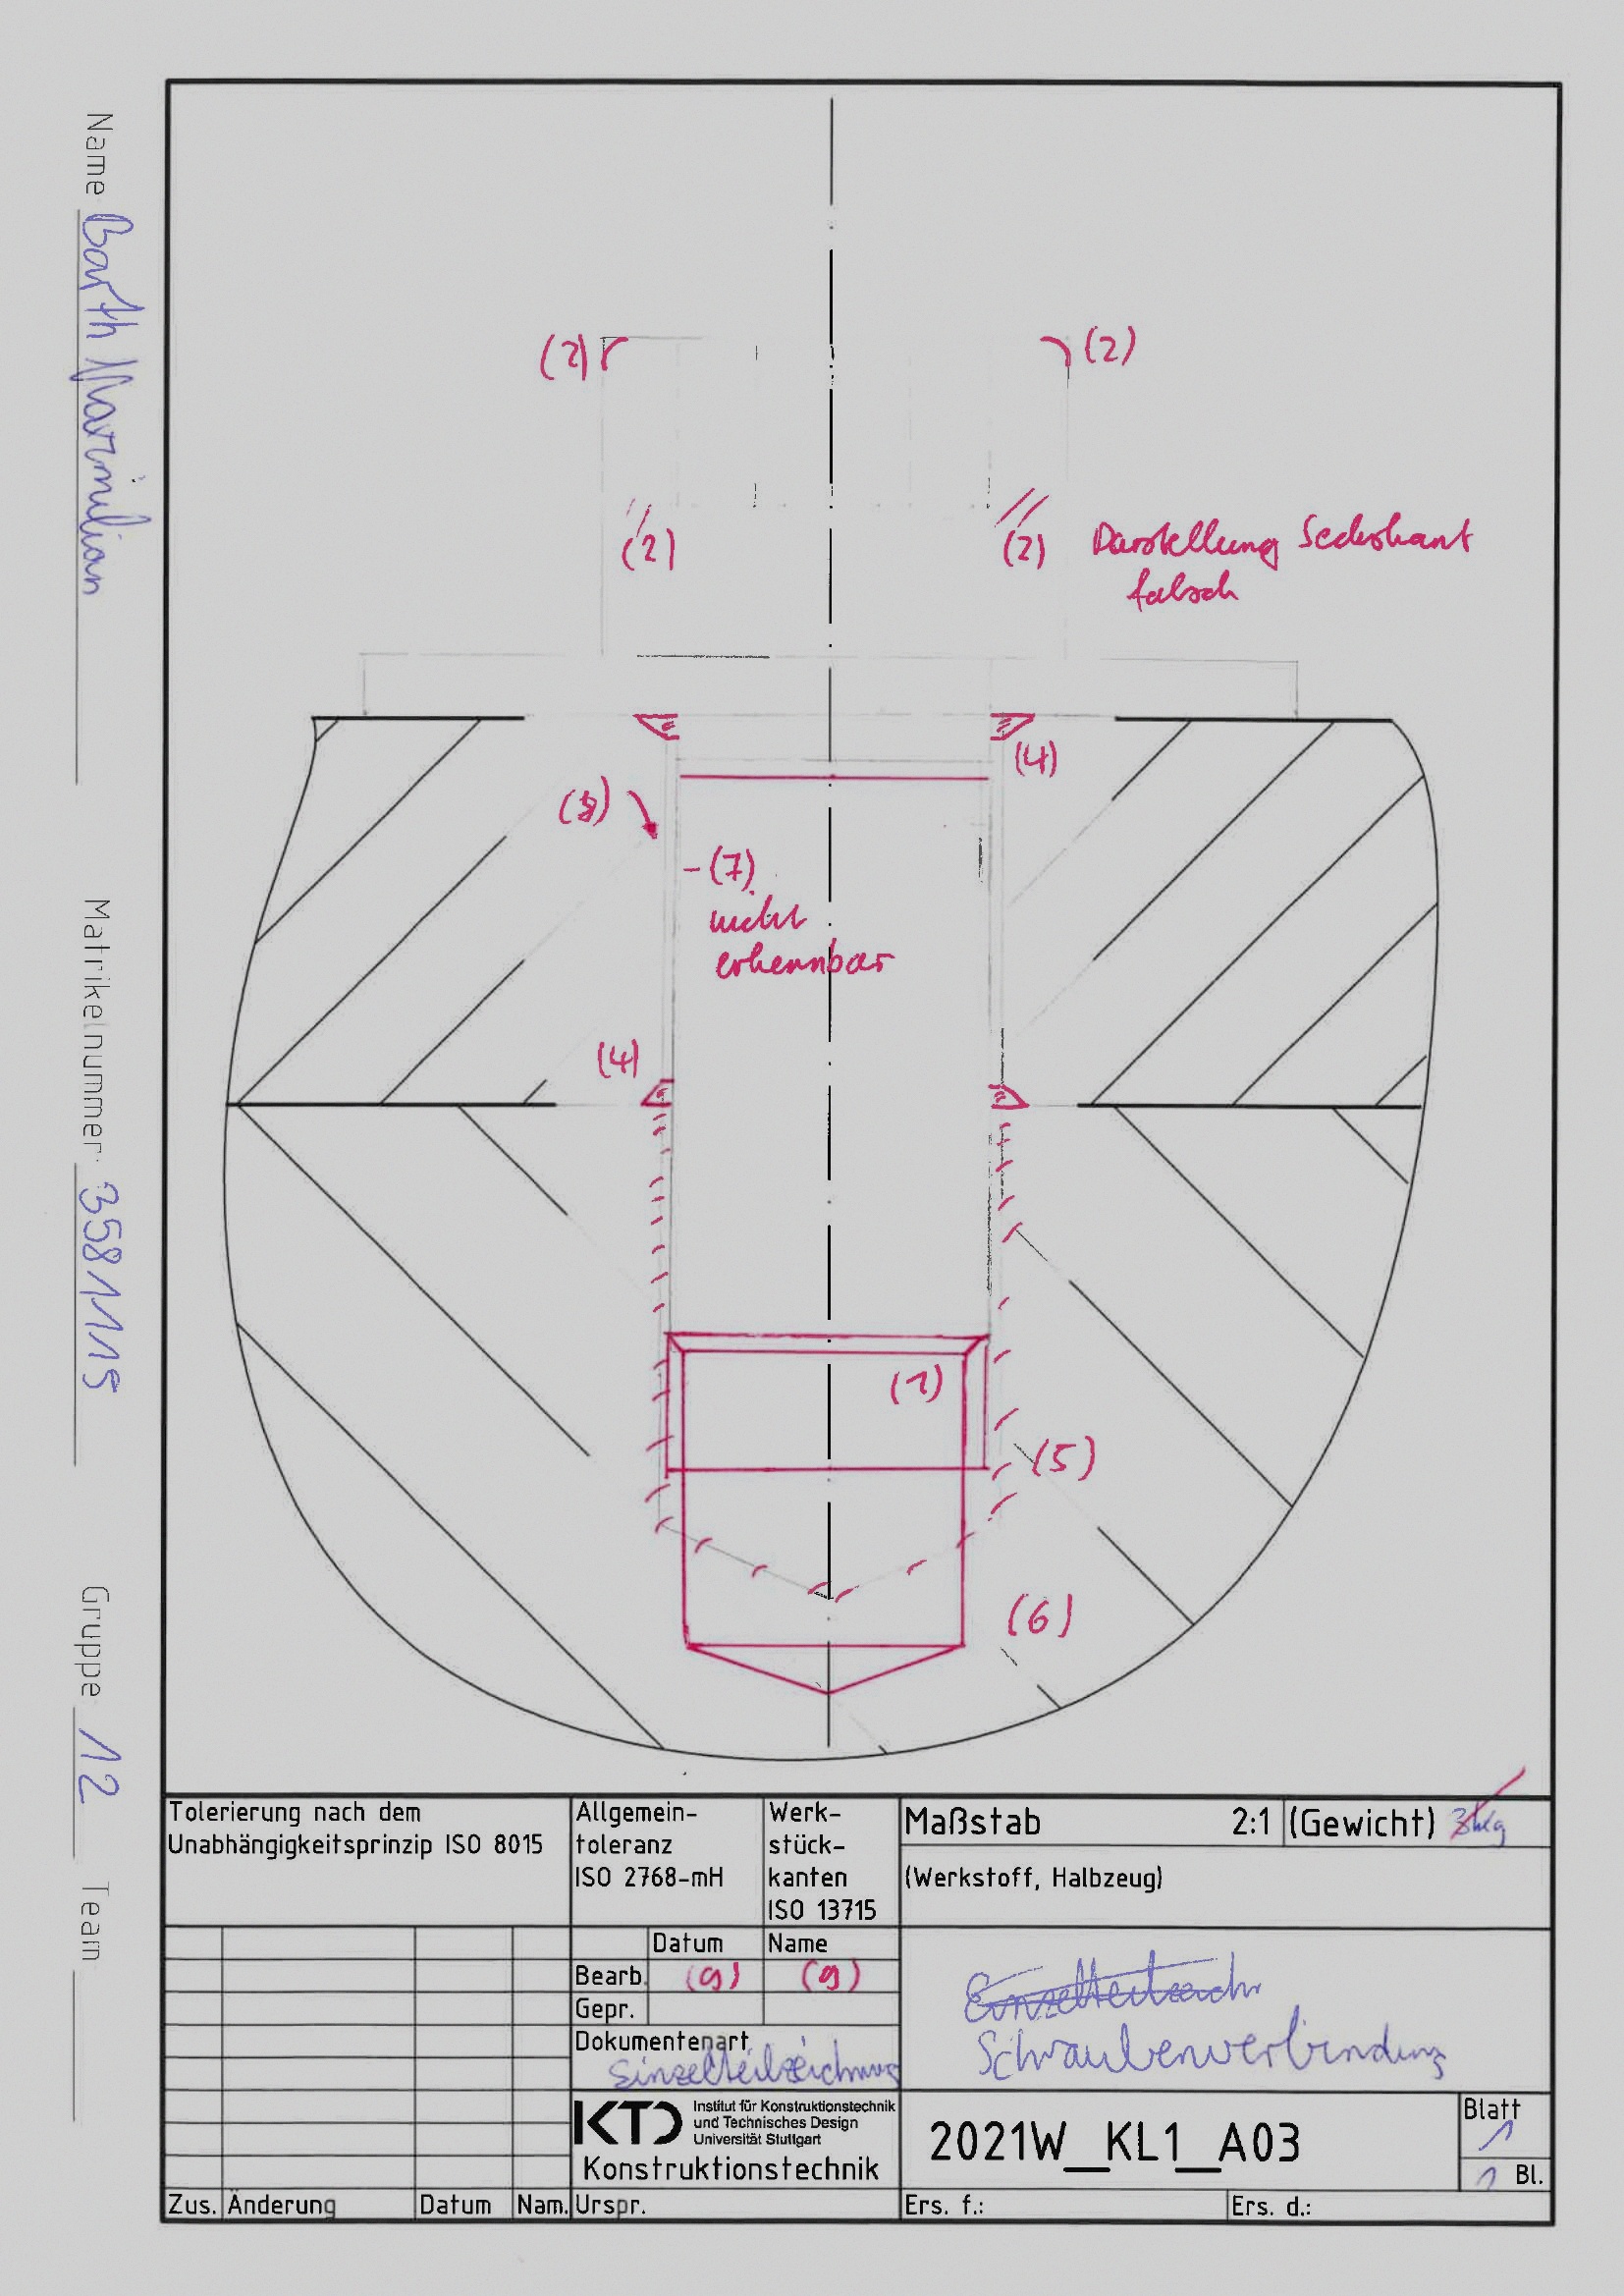 Name Barth Maximilian
Matrikelnummer 3581115
Gruppe 12
Team
(2)
(2)
(2)
(2) Darstellung Sechskant
falsch
(4)
(3)
-(7)
nicht
erkennbar
(4)
(1)
(5)
(6)
Tolerierung nach dem
Unabhängigkeitsprinzip ISO 8015
Allgemein-
toleranz
ISO 2768-mH
Werk-
stück-
kanten
ISO 13715
Maßstab 2:1 (Gewicht)
(Werkstoff, Halbzeug)
Datum Name
Bearb. (9) (9)
Gepr.
Dokumentenart
Einzelteilzeichnung
Schraubenverbindung
KTD Institut für Konstruktionstechnik
und Technisches Design
Universität Stuttgart
Konstruktionstechnik
2021W_KL1_A03
Blatt
1
1 Bl.
Zus. Änderung Datum Nam. Urspr. Ers. f.: Ers. d.: